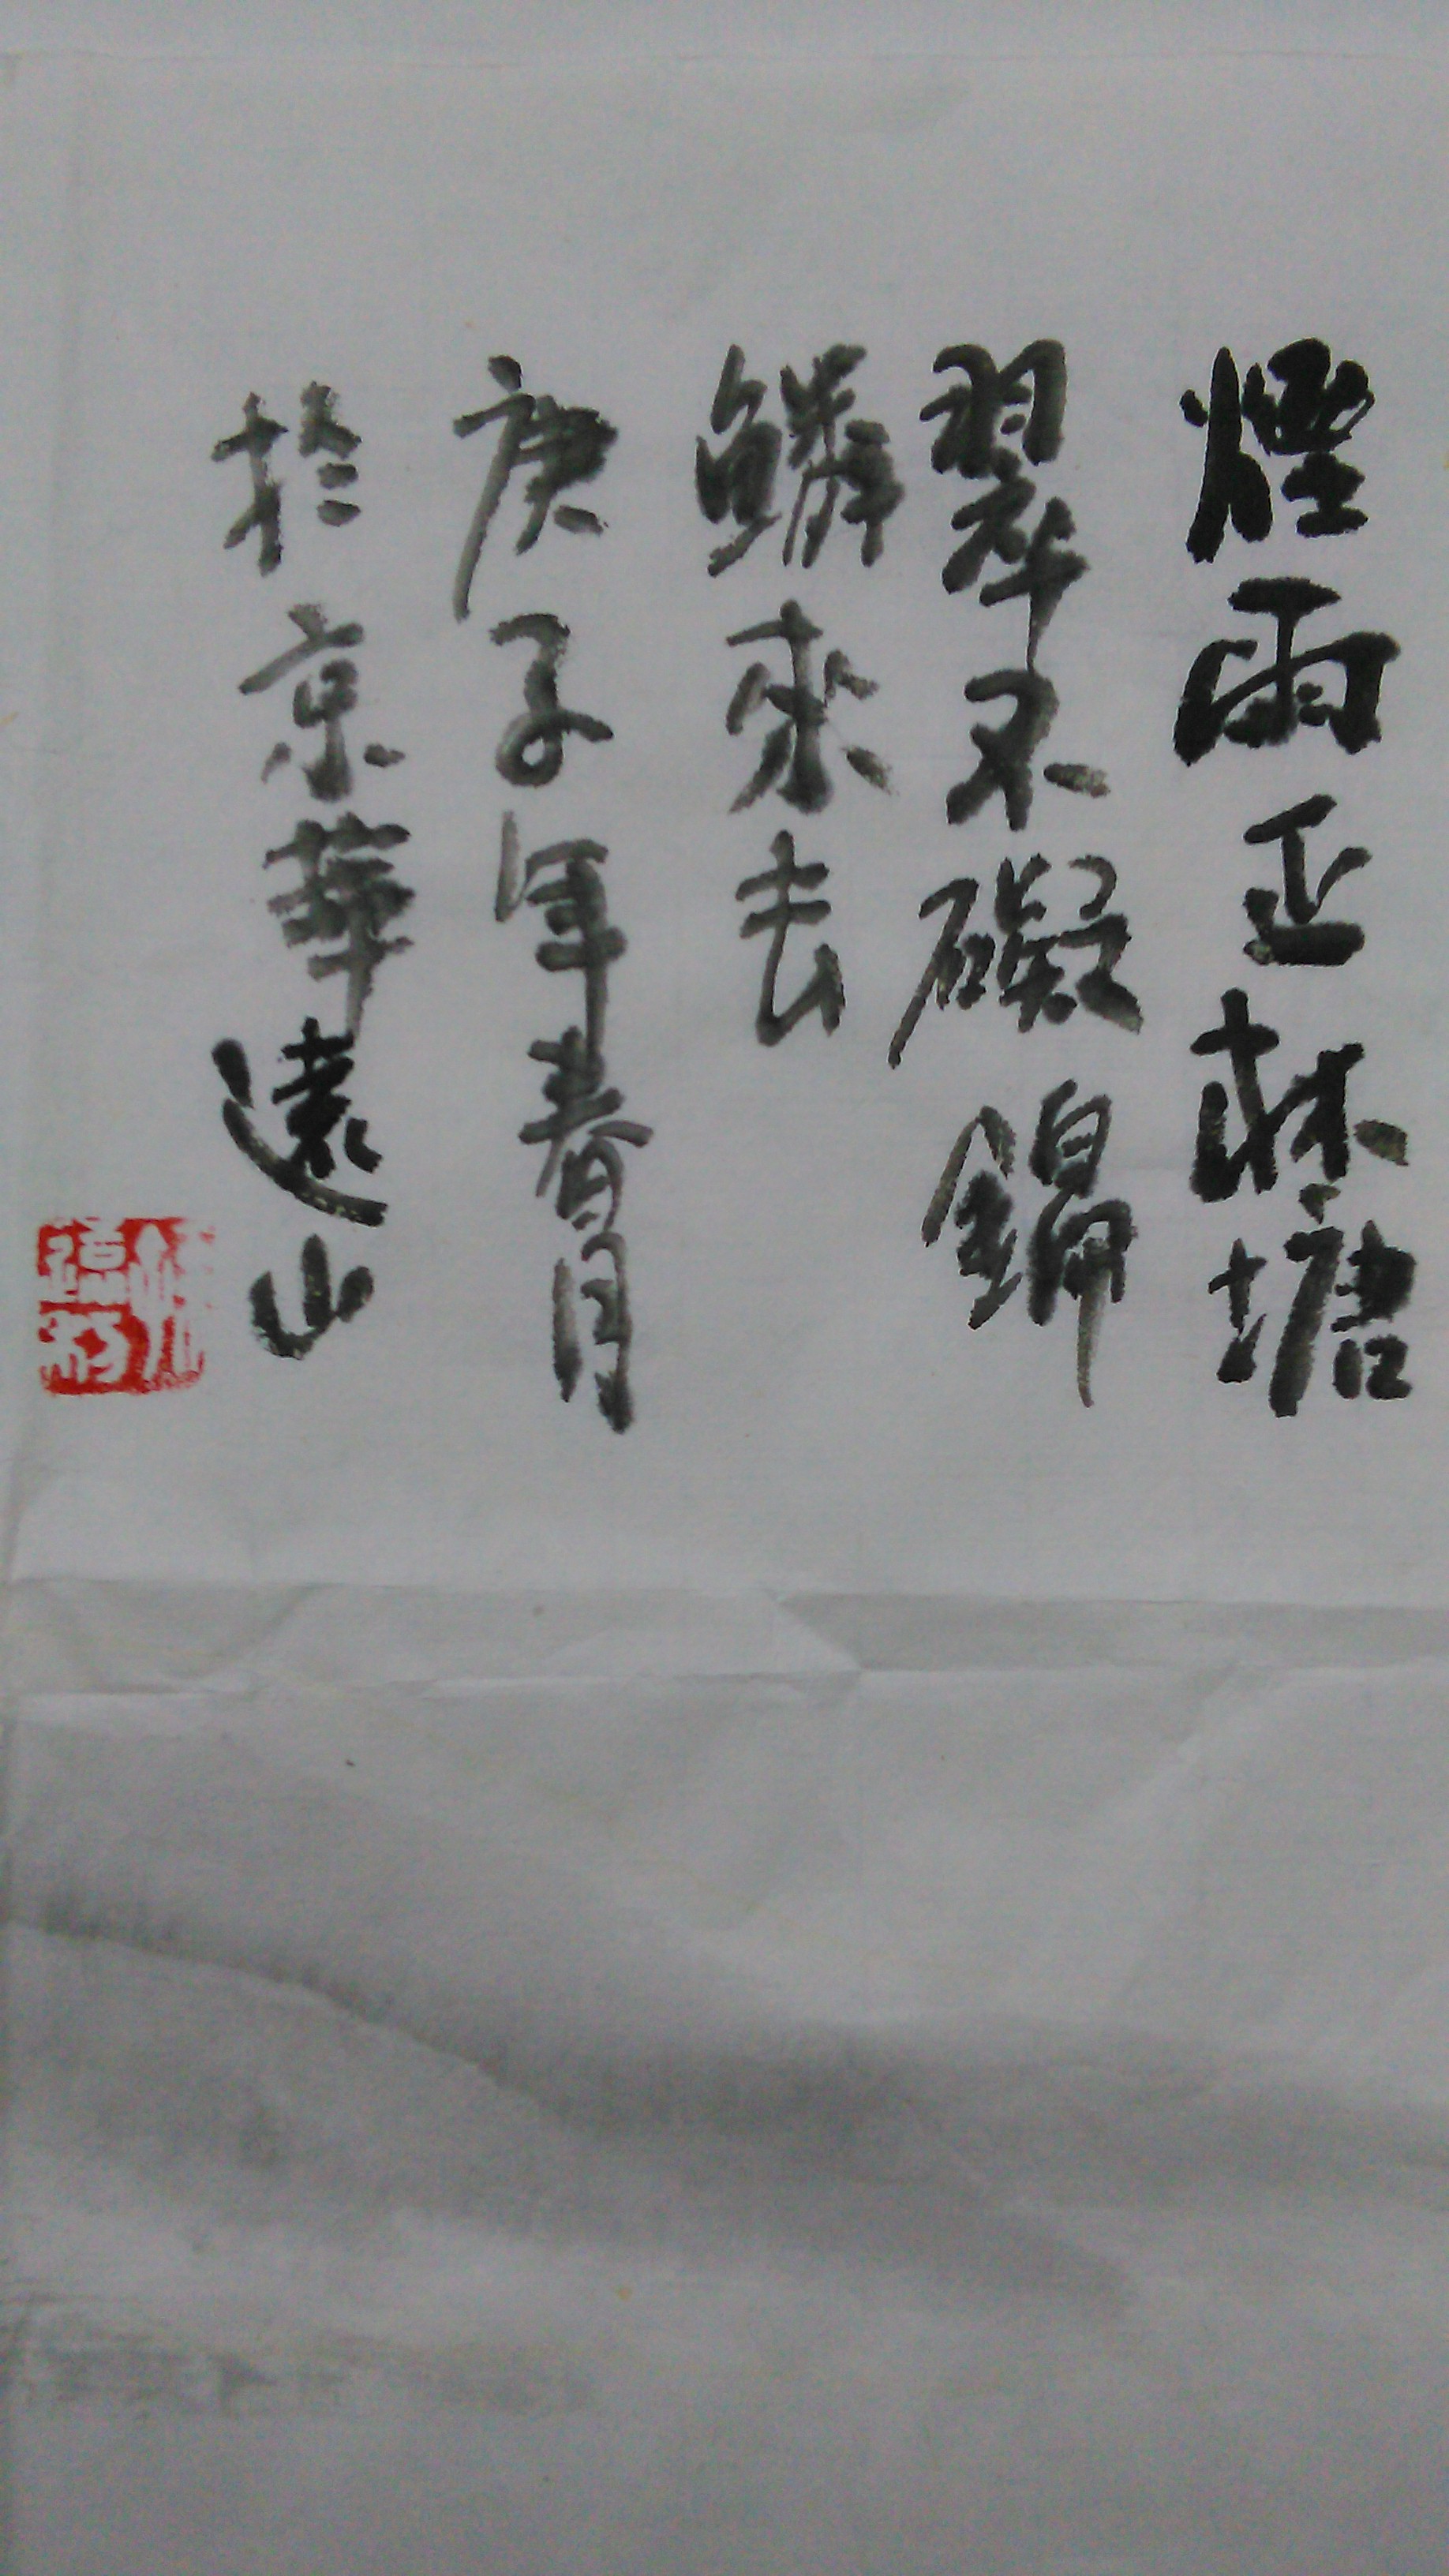 煙雨正林塘
翠不礙錦
鱗來去
庚子年春月
於京華遠山